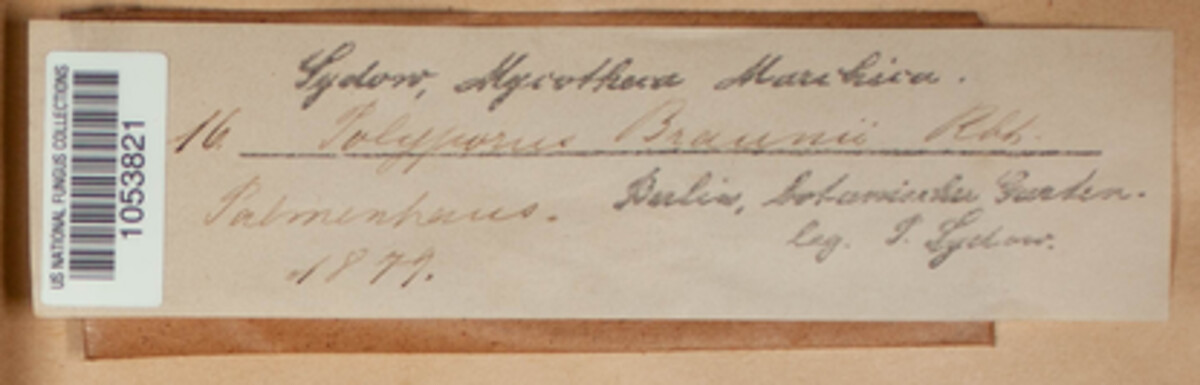 US NATIONAL FUNGUS COLLECTIONS
1053821
Sydow, Mycotheca Marchica.
16. Polyporus Braunii Rbh.
Palmenhaus.
Berlin, botanischer Garten.
leg. P. Sydow.
1879.